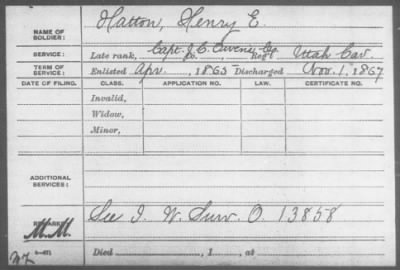 NAME OF SOLDIER: Hatton, Henry E.
SERVICE: Late rank, Capt. J. C. Co. Reg't Utah Cav.
TERM OF SERVICE: Enlisted Apr. , 1865 Discharged Nov. 1, 1867
DATE OF FILING. CLASS. APPLICATION NO. LAW. CERTIFICATE NO.
Invalid,
Widow,
Minor,
ADDITIONAL SERVICES:
REMARKS: See I. W. Surv. O. 13858
M.M.
Died , 1 , at